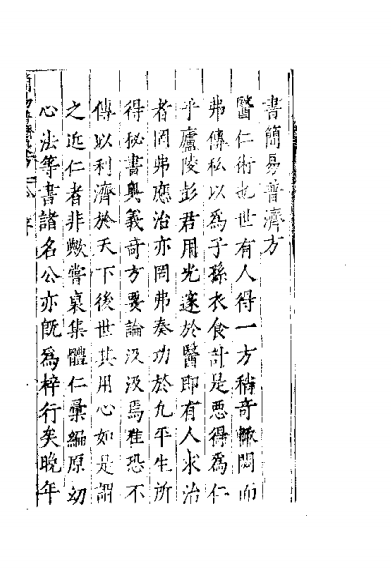 書簡易普濟方
醫仁術也世有人得一方稱奇輒閟而
弗傳私以為子孫衣食計是惡得為仁
乎廬陵彭君用光邃於醫即有人求治
者罔弗應治亦罔弗奏功於凡平生所
得秘書奧義奇方要論汲汲焉惟恐不
傳以利濟於天下後世其用心如是謂
之近仁者非歟嘗裒集體仁彙編原幼
心法等書諸名公亦旣為梓行矣晚年